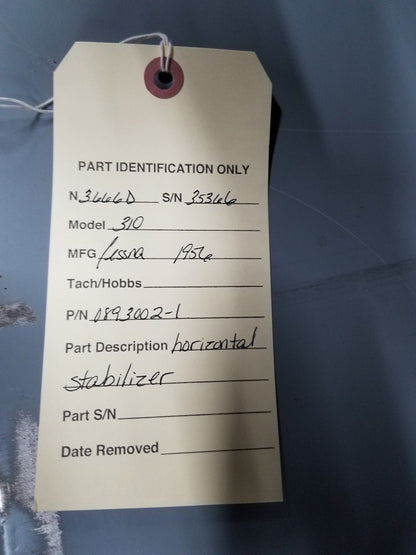 PART IDENTIFICATION ONLY
N 3666D S/N 35366
Model 310
MFG Cessna 1956
Tach/Hobbs
P/N 0893002-1
Part Description horizontal
stabilizer
Part S/N
Date Removed